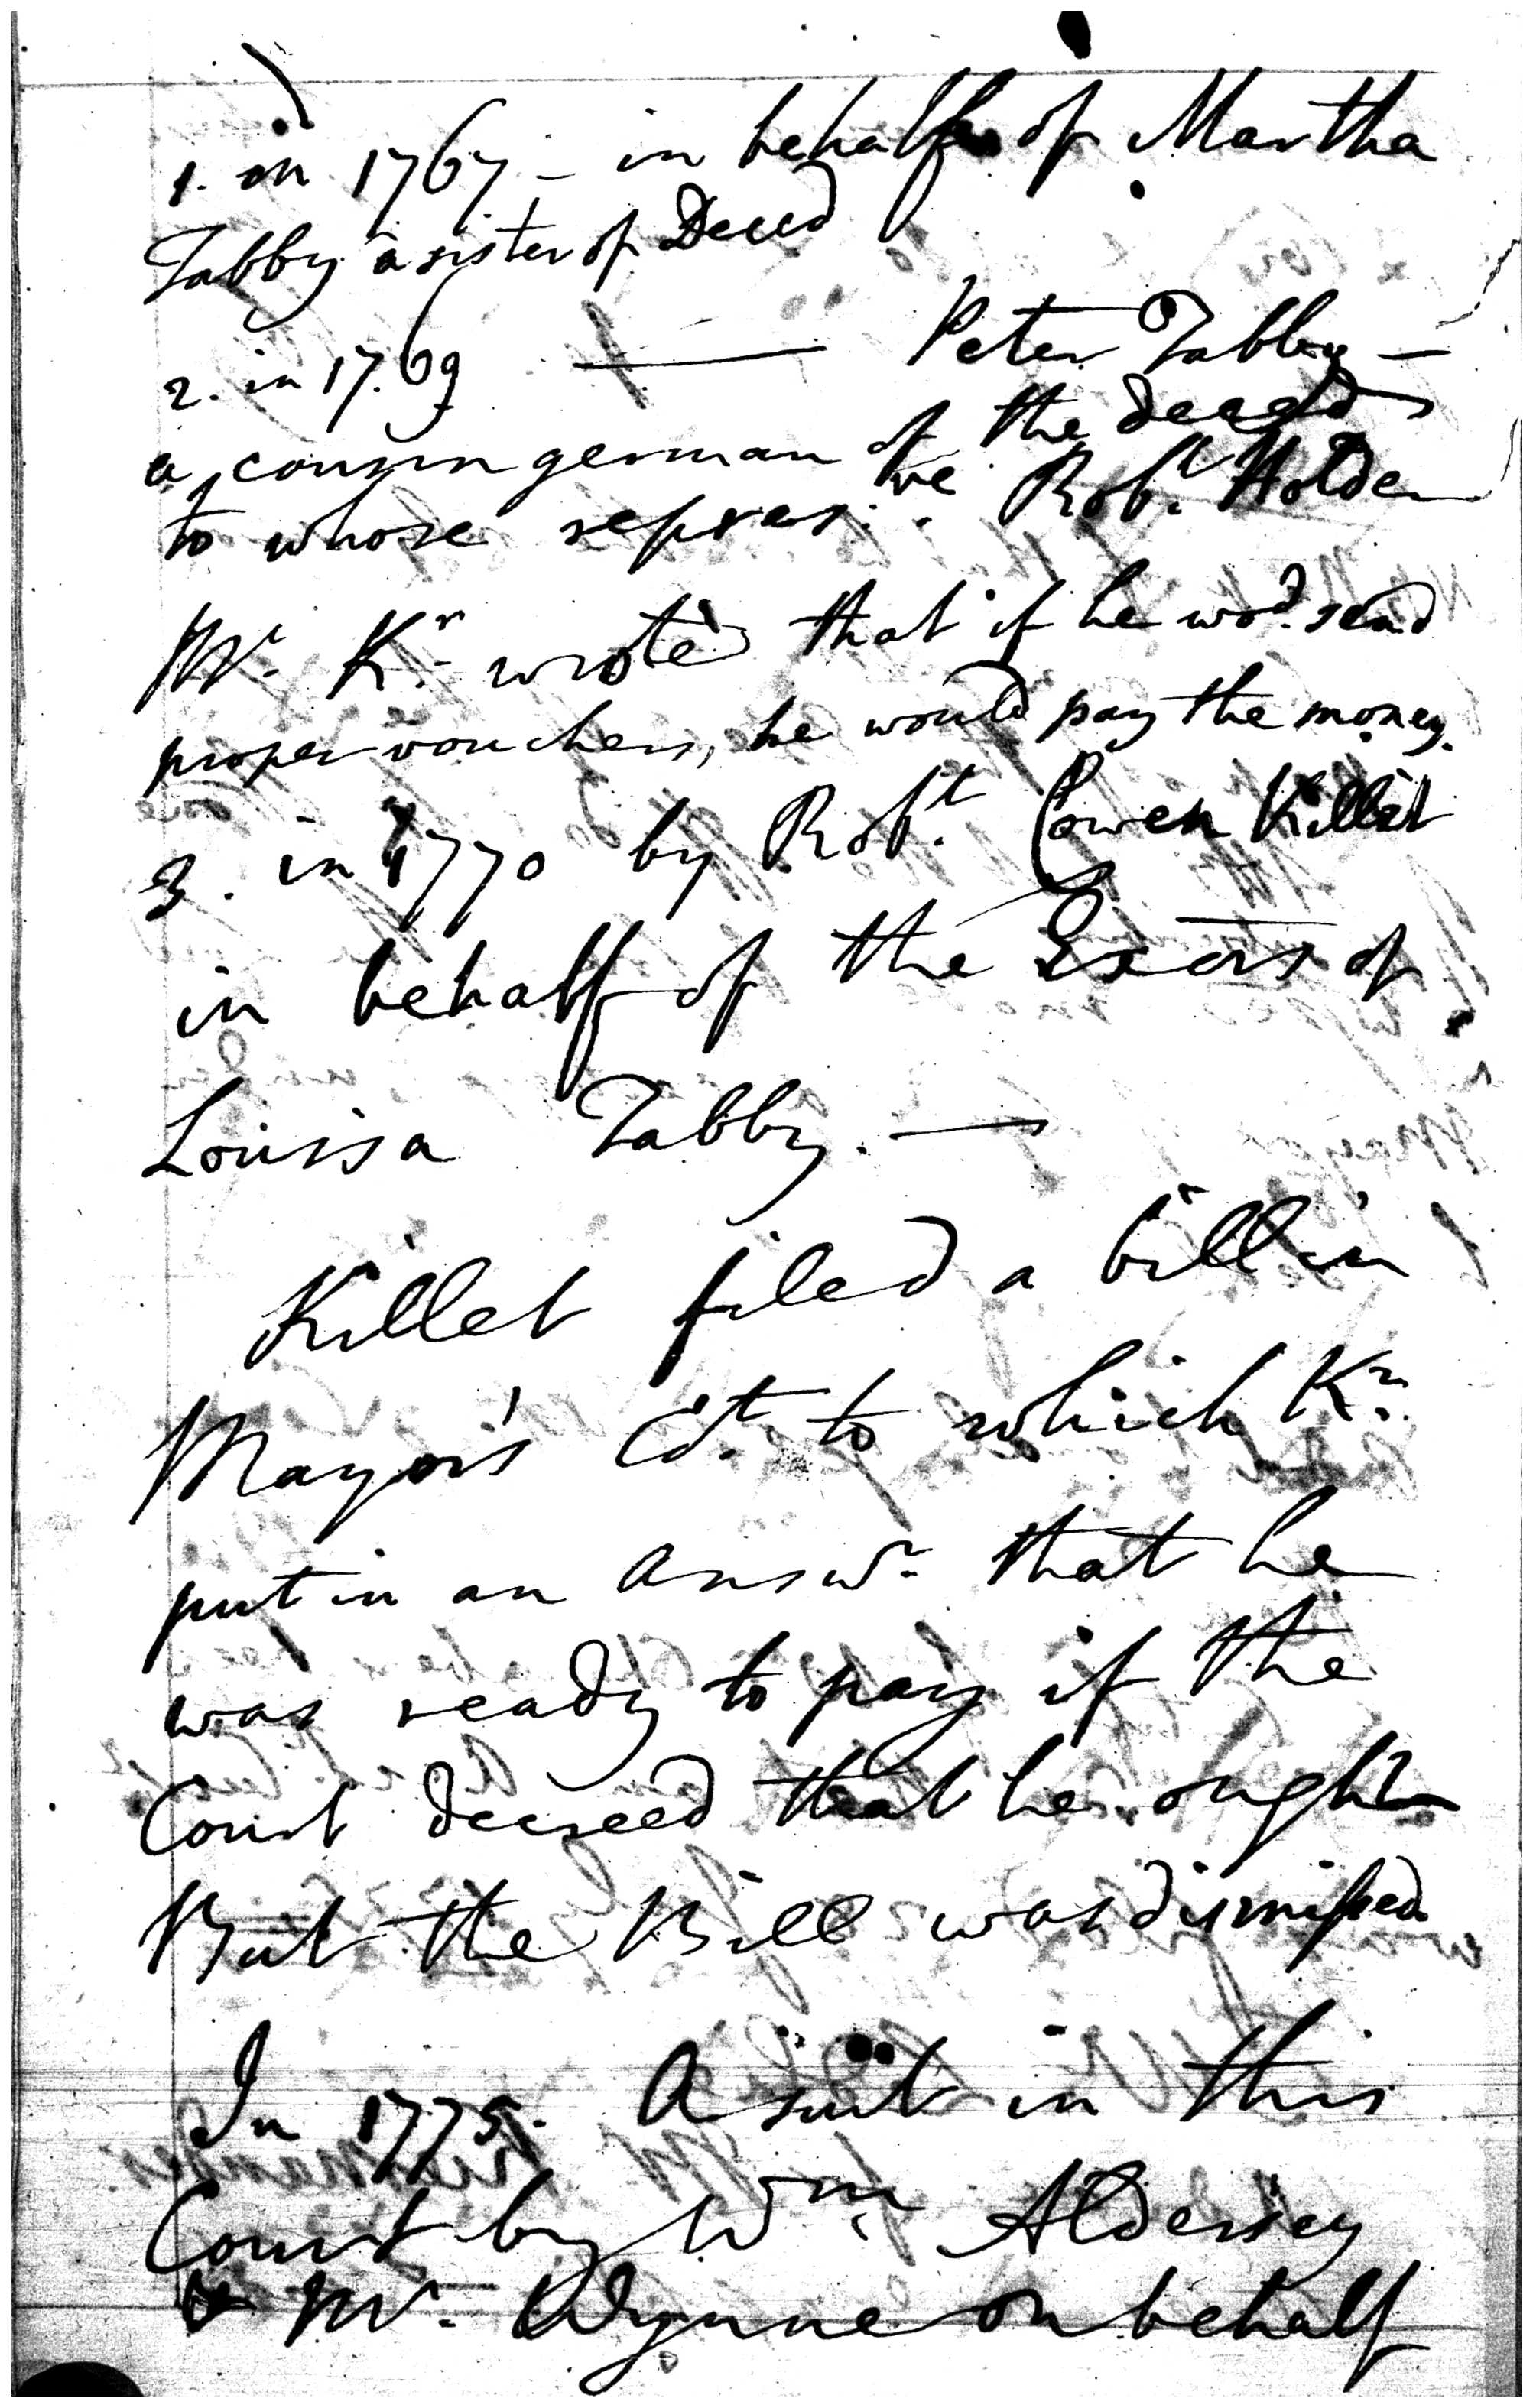 1. in 1767 - in behalf of Martha
Tabby a sister of Deced
2. in 1769 —— Peter Tabby —
a cousin german of the deced
to whose represve Robt. Holden
Mr. Kr. wrote that if he wod. send
proper vouchers, he would pay the money.
3. in 1770 by Robt. Cowen Killet
in behalf of the Exors of
Louisa Tabby. —
Killet filed a bill in
Mayor's Ct. to which Kr.
put in an Answr. that he
was ready to pay if the
Court decreed that he ought
But the Bill was dismissed
In 1775. A suit in this
Court by Wm. Aldersey
& Mr. Wynne on behalf